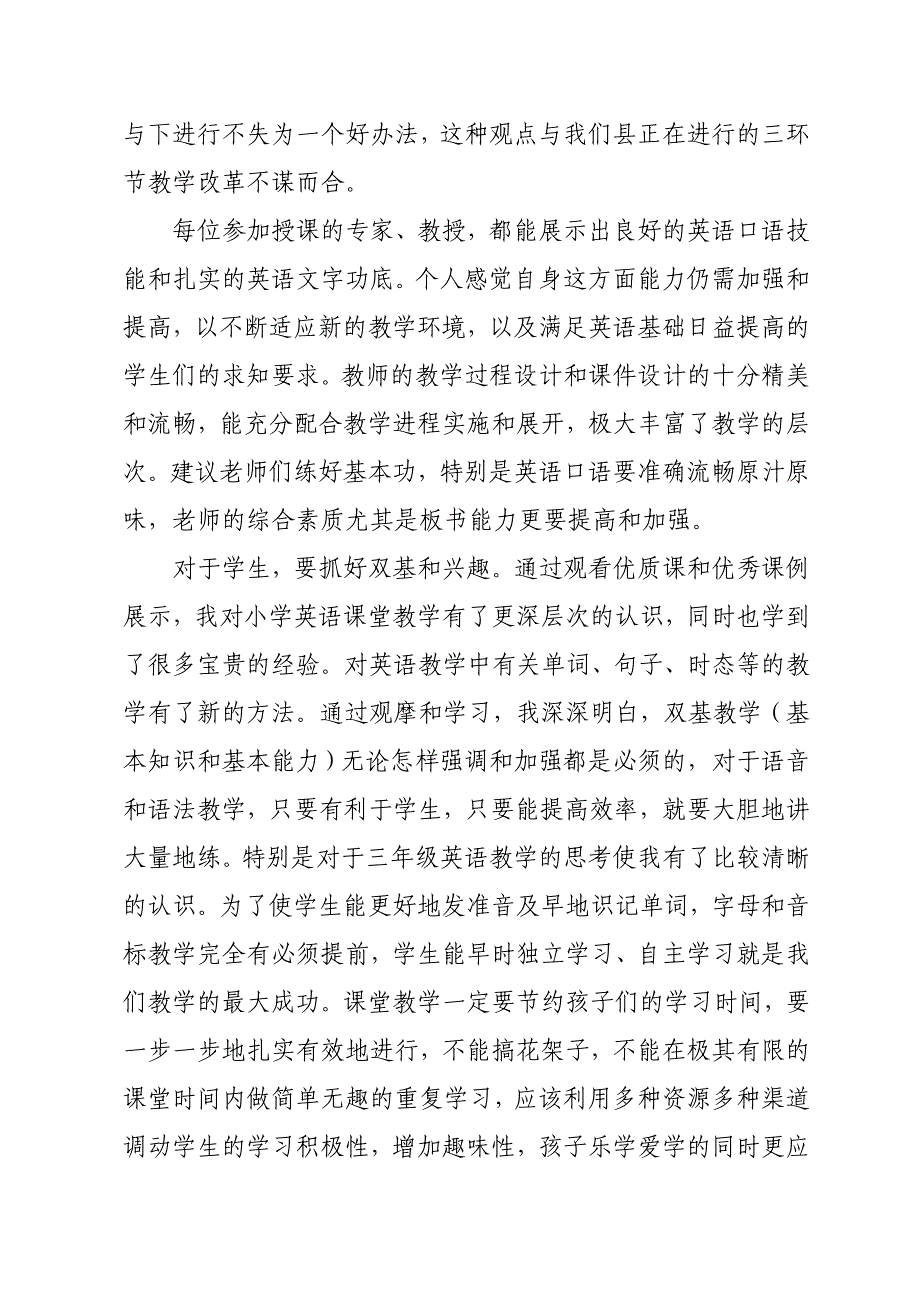 与下进行不失为一个好办法，这种观点与我们县正在进行的三环
节教学改革不谋而合。
每位参加授课的专家、教授，都能展示出良好的英语口语技
能和扎实的英语文字功底。个人感觉自身这方面能力仍需加强和
提高，以不断适应新的教学环境，以及满足英语基础日益提高的
学生们的求知要求。教师的教学过程设计和课件设计的十分精美
和流畅，能充分配合教学进程实施和展开，极大丰富了教学的层
次。建议老师们练好基本功，特别是英语口语要准确流畅原汁原
味，老师的综合素质尤其是板书能力更要提高和加强。
对于学生，要抓好双基和兴趣。通过观看优质课和优秀课例
展示，我对小学英语课堂教学有了更深层次的认识，同时也学到
了很多宝贵的经验。对英语教学中有关单词、句子、时态等的教
学有了新的方法。通过观摩和学习，我深深明白，双基教学（基
本知识和基本能力）无论怎样强调和加强都是必须的，对于语音
和语法教学，只要有利于学生，只要能提高效率，就要大胆地讲
大量地练。特别是对于三年级英语教学的思考使我有了比较清晰
的认识。为了使学生能更好地发准音及早地识记单词，字母和音
标教学完全有必须提前，学生能早时独立学习、自主学习就是我
们教学的最大成功。课堂教学一定要节约孩子们的学习时间，要
一步一步地扎实有效地进行，不能搞花架子，不能在极其有限的
课堂时间内做简单无趣的重复学习，应该利用多种资源多种渠道
调动学生的学习积极性，增加趣味性，孩子乐学爱学的同时更应